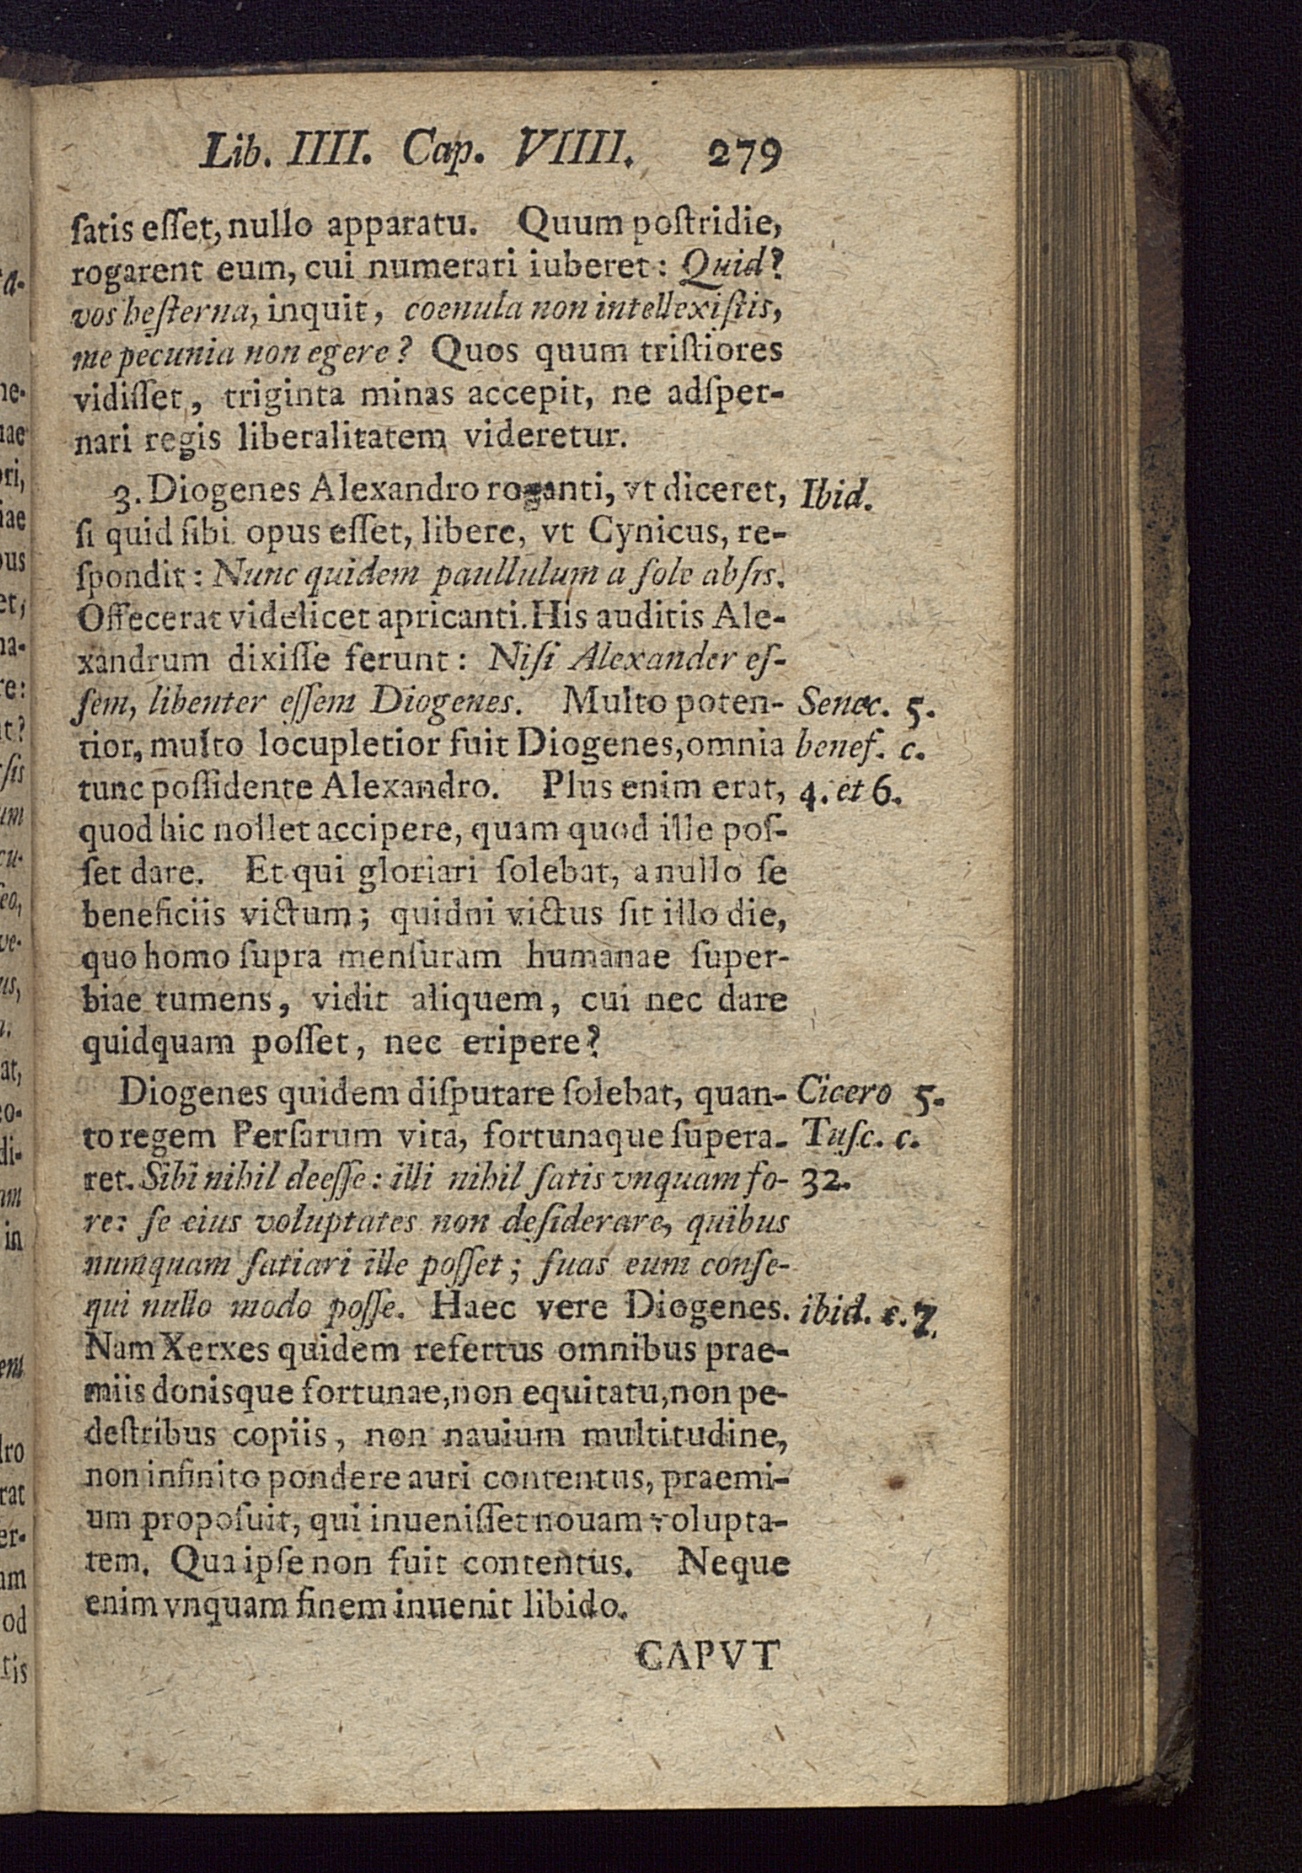 Lib. IIII. Cap. VIIII. 279
ſatis eſſet, nullo apparatu. Quum poſtridie,
rogarent eum, cui numerari iuberet: Quid?
vos heſterna, inquit, coenula non intellexiſtis,
me pecunia non egere? Quos quum triſtiores
vidiſſet, triginta minas accepit, ne adſper-
nari regis liberalitatem videretur.
3. Diogenes Alexandro roganti, vt diceret, Ibid.
ſi quid ſibi opus eſſet, libere, vt Cynicus, re-
ſpondit: Nunc quidem paullulum a ſole abſis.
Offecerat videlicet apricanti. His auditis Ale-
xandrum dixiſſe ferunt: Niſi Alexander eſ-
ſem, libenter eſſem Diogenes. Multo poten- Senec. 5.
tior, multo locupletior fuit Diogenes, omnia benef. c.
tunc poſſidente Alexandro. Plus enim erat, 4. et 6.
quod hic nollet accipere, quam quod ille poſ-
ſet dare. Et qui gloriari ſolebat, a nullo ſe
beneficiis victum; quidni victus ſit illo die,
quo homo ſupra menſuram humanae ſuper-
biae tumens, vidit aliquem, cui nec dare
quidquam poſſet, nec eripere?
Diogenes quidem diſputare ſolebat, quan- Cicero 5.
to regem Perſarum vita, fortunaque ſupera- Tuſc. c.
ret. Sibi nihil deeſſe: illi nihil ſatis vnquam fo- 32.
re: ſe eius voluptates non deſiderare, quibus
numquam ſatiari ille poſſet; ſuas eum conſe-
qui nullo modo poſſe. Haec vere Diogenes. ibid. c. 7.
Nam Xerxes quidem refertus omnibus prae-
miis donisque fortunae, non equitatu, non pe-
deſtribus copiis, non nauium multitudine,
non infinito pondere auri contentus, praemi-
um propoſuit, qui inueniſſet nouam volupta-
tem. Qua ipſe non fuit contentus. Neque
enim vnquam finem inuenit libido.
CAPVT